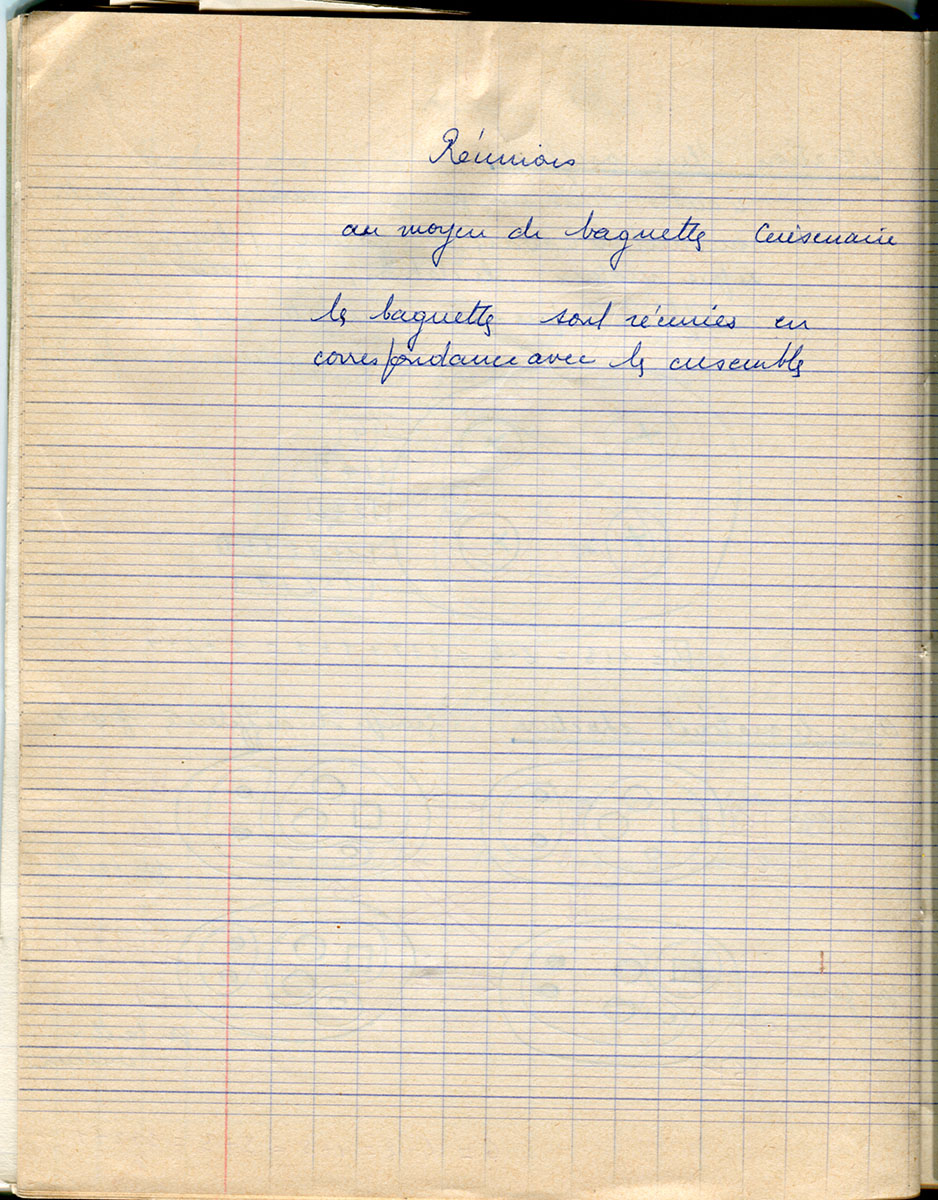 Réunions
au moyen de baguettes Cuisenaire
les baguettes sont réunies en
correspondance avec les ensembles